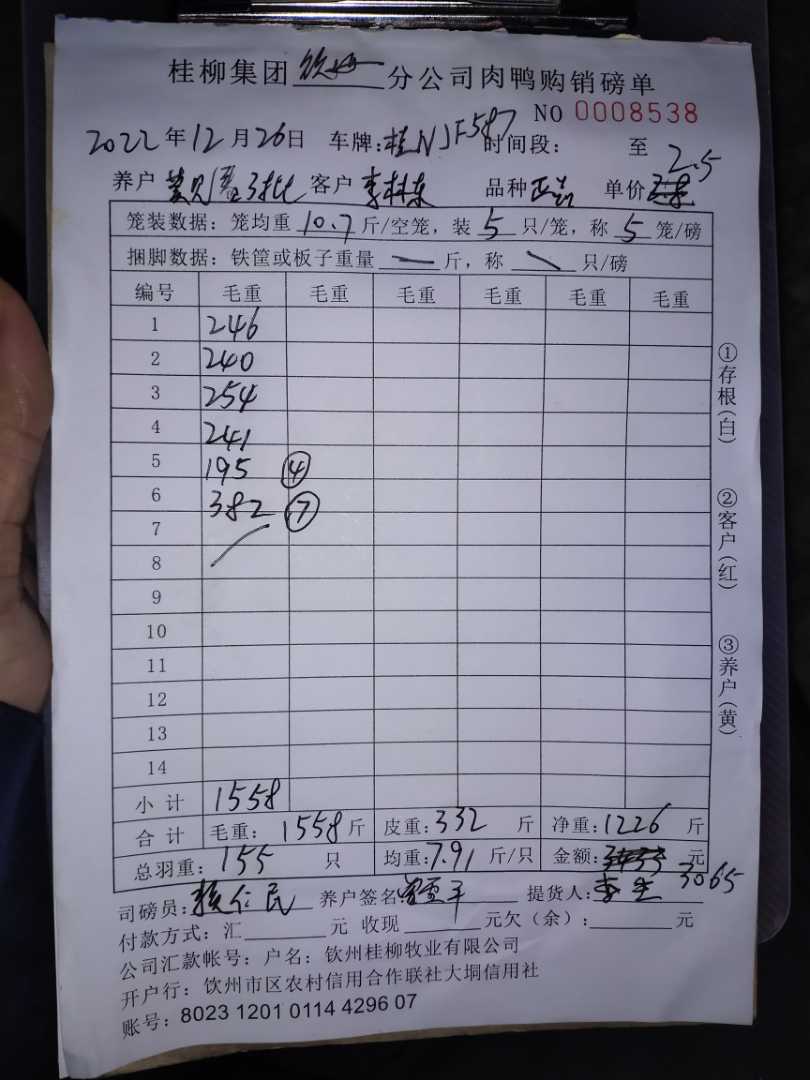 桂柳集团 钦州 分公司肉鸭购销磅单
NO 0008538
2022年12月26日 车牌:桂NJF587 时间段: 至
2.5
养户 客户 李林东 品种 单价
笼装数据: 笼均重 10.7 斤/空笼, 装 5 只/笼, 称 5 笼/磅
捆脚数据: 铁筐或板子重量 — 斤, 称 \ 只/磅
编号 毛重 毛重 毛重 毛重 毛重 毛重
1 246
2 240
3 254
4 241
5 195 ④
6 382 ⑦
7
8
9
10
11
12
13
14
小计 1558
合计 毛重: 1558斤 皮重:332 斤 净重:1226 斤
总羽重: 155 只 均重:7.91 斤/只 金额: 元
3065
司磅员: 养户签名 提货人:李
付款方式: 汇 元 收现 元欠(余): 元
公司汇款帐号: 户名: 钦州桂柳牧业有限公司
开户行: 钦州市区农村信用合作联社大垌信用社
账号: 8023 1201 0114 4296 07
①存根(白)
②客户(红)
③养户(黄)